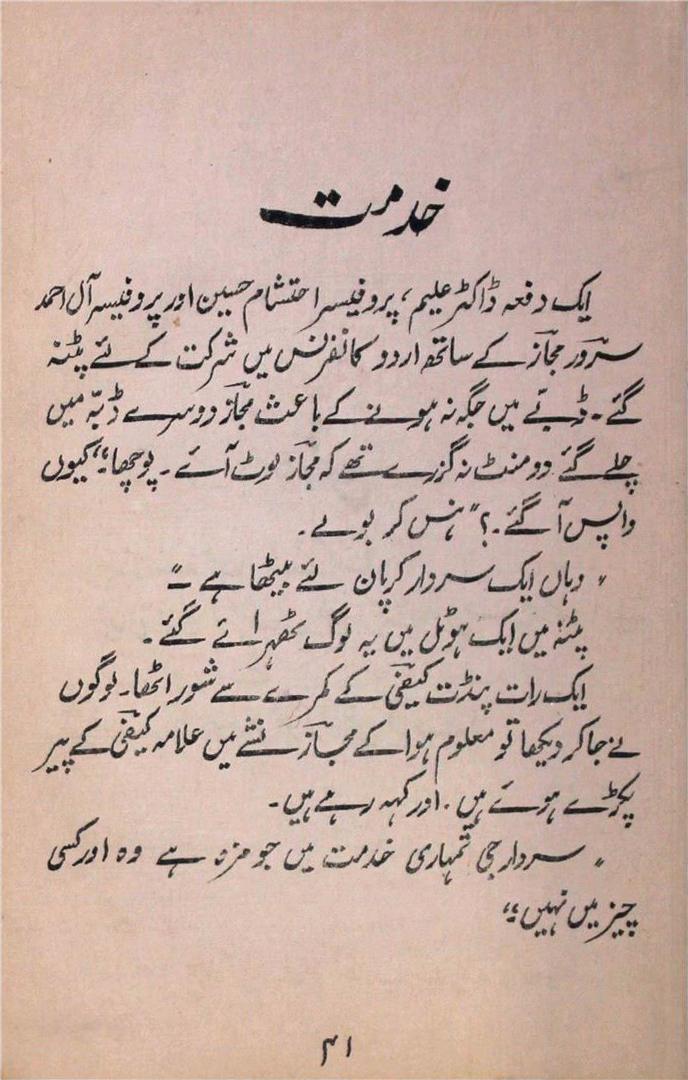 خدمت
ایک دفعہ ڈاکٹر علیم، پروفیسر احتشام حسین اور پروفیسر آل احمد
سرور مجاز کے ساتھ اردو کانفرنس میں شرکت کے لئے پٹنہ
گئے۔ ڈبّے میں جگہ نہ ہونے کے باعث مجاز دوسرے ڈبّہ میں
چلے گئے دو منٹ نہ گزرے تھے کہ مجاز لوٹ آئے۔ پوچھا۔ “کیوں
واپس آ گئے۔؟” ہنس کر بولے۔
“وہاں ایک سردار کرپان لئے بیٹھا ہے۔”
پٹنہ میں ایک ہوٹل میں یہ لوگ ٹھہرائے گئے۔
ایک رات پنڈت کیفی کے کمرے سے شور اٹھا۔ لوگوں
نے جا کر دیکھا تو معلوم ہوا کے مجاز نشے میں علامہ کیفی کے پیر
پکڑے ہوئے ہیں۔ اور کہہ رہے ہیں۔
“سردار جی تمہاری خدمت میں جو مزہ ہے وہ اور کسی
چیز میں نہیں۔”
۴۱